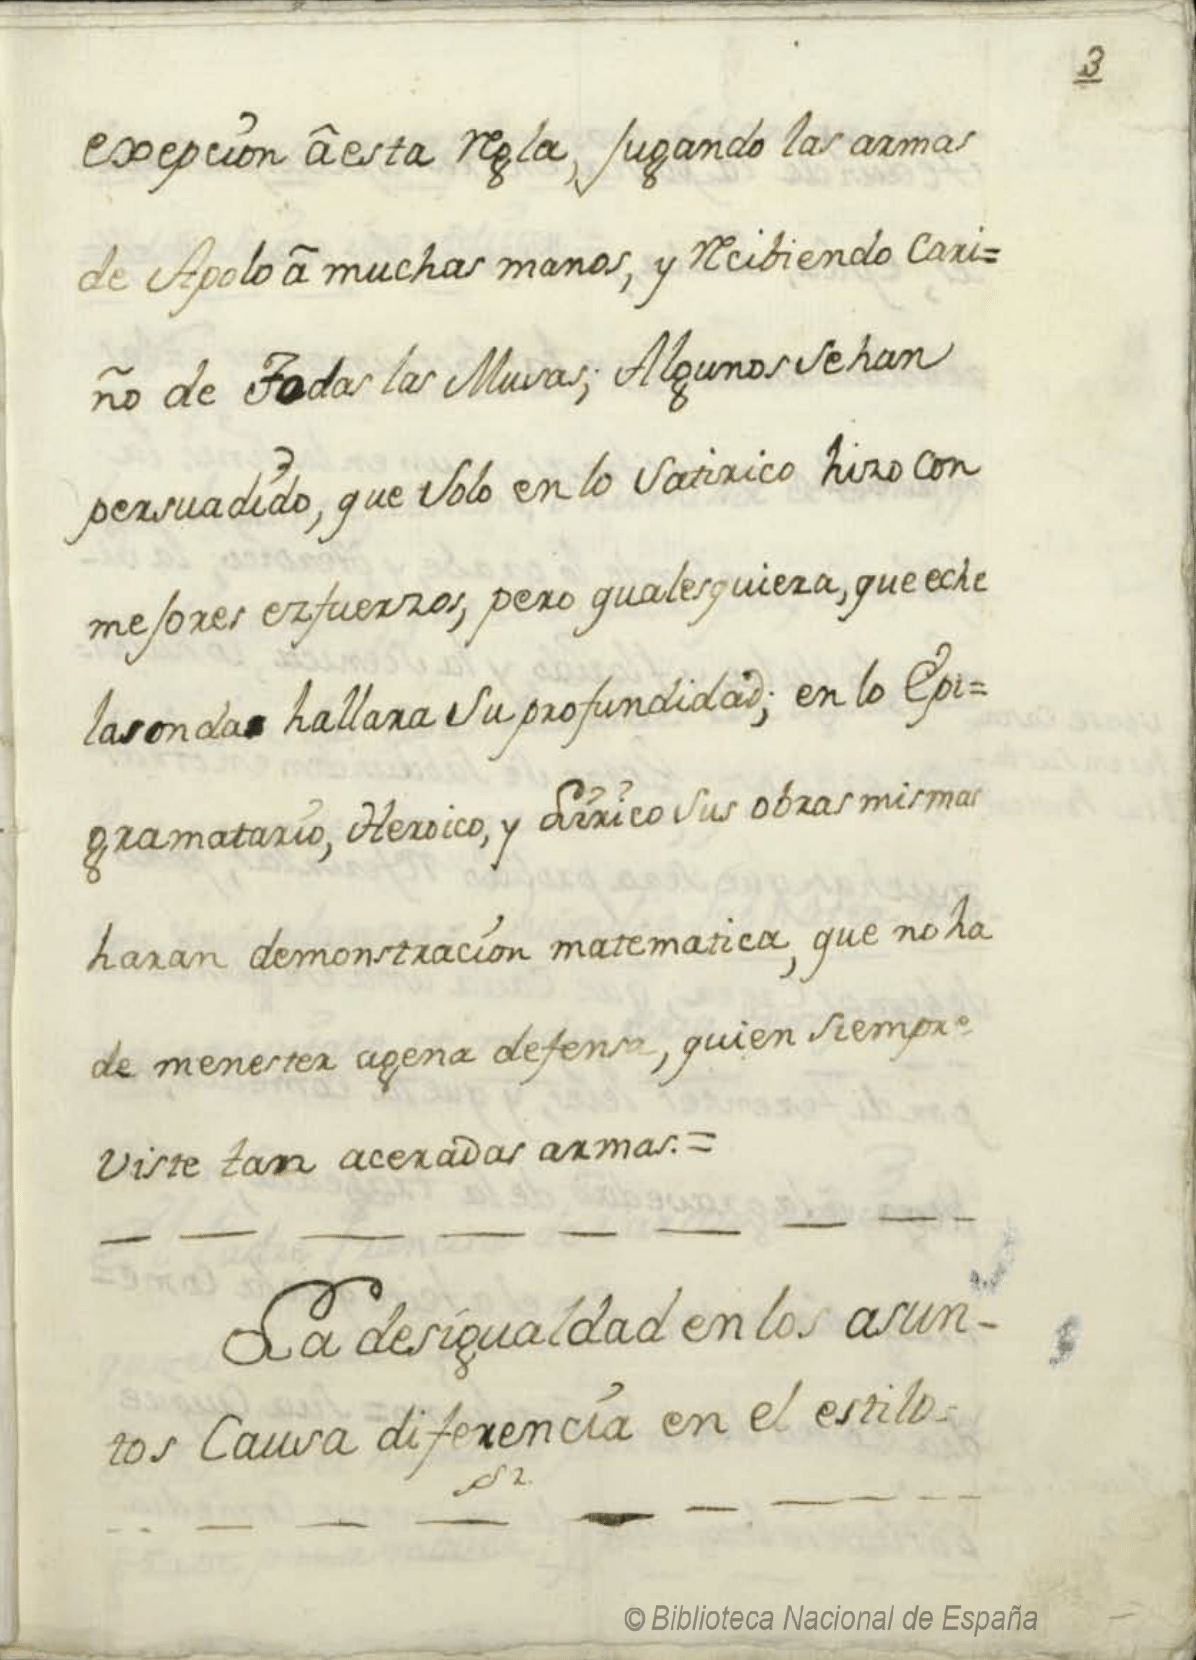 3
excepcion â esta regla, jugando las armas
de Apolo â muchas manos, y recibiendo Cari=
ño de Todas las Musas; Algunos se han
persuadido, que Solo en lo Satirico hizo con
mejores ezfuerzos, pero qualesquiera, que eche
las ondas hallara Su profundidad; en lo Epi=
gramatario, Heroico, y Lirico Sus obras mismas
haran demonstracion matematica, que no ha
de menester agena defensa, quien Siempre
viste tan aceradas armas.=
La desigualdad en los asun-
tos Causa diferencia en el estilo.
§ 2.
© Biblioteca Nacional de España